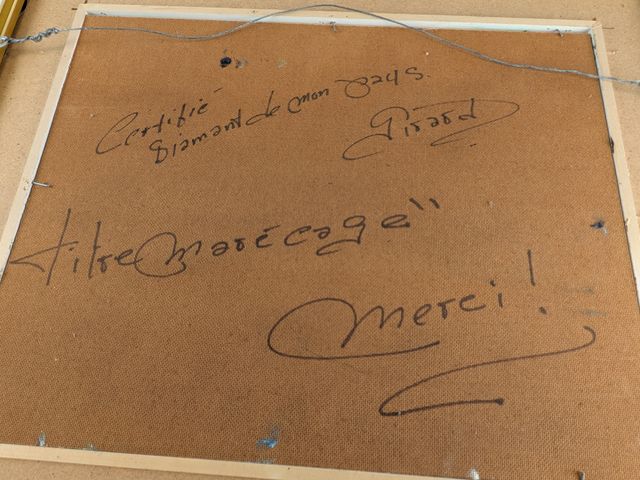 Certifié
Diamant de mon pays.
Girard
titre Marécage"
Merci!